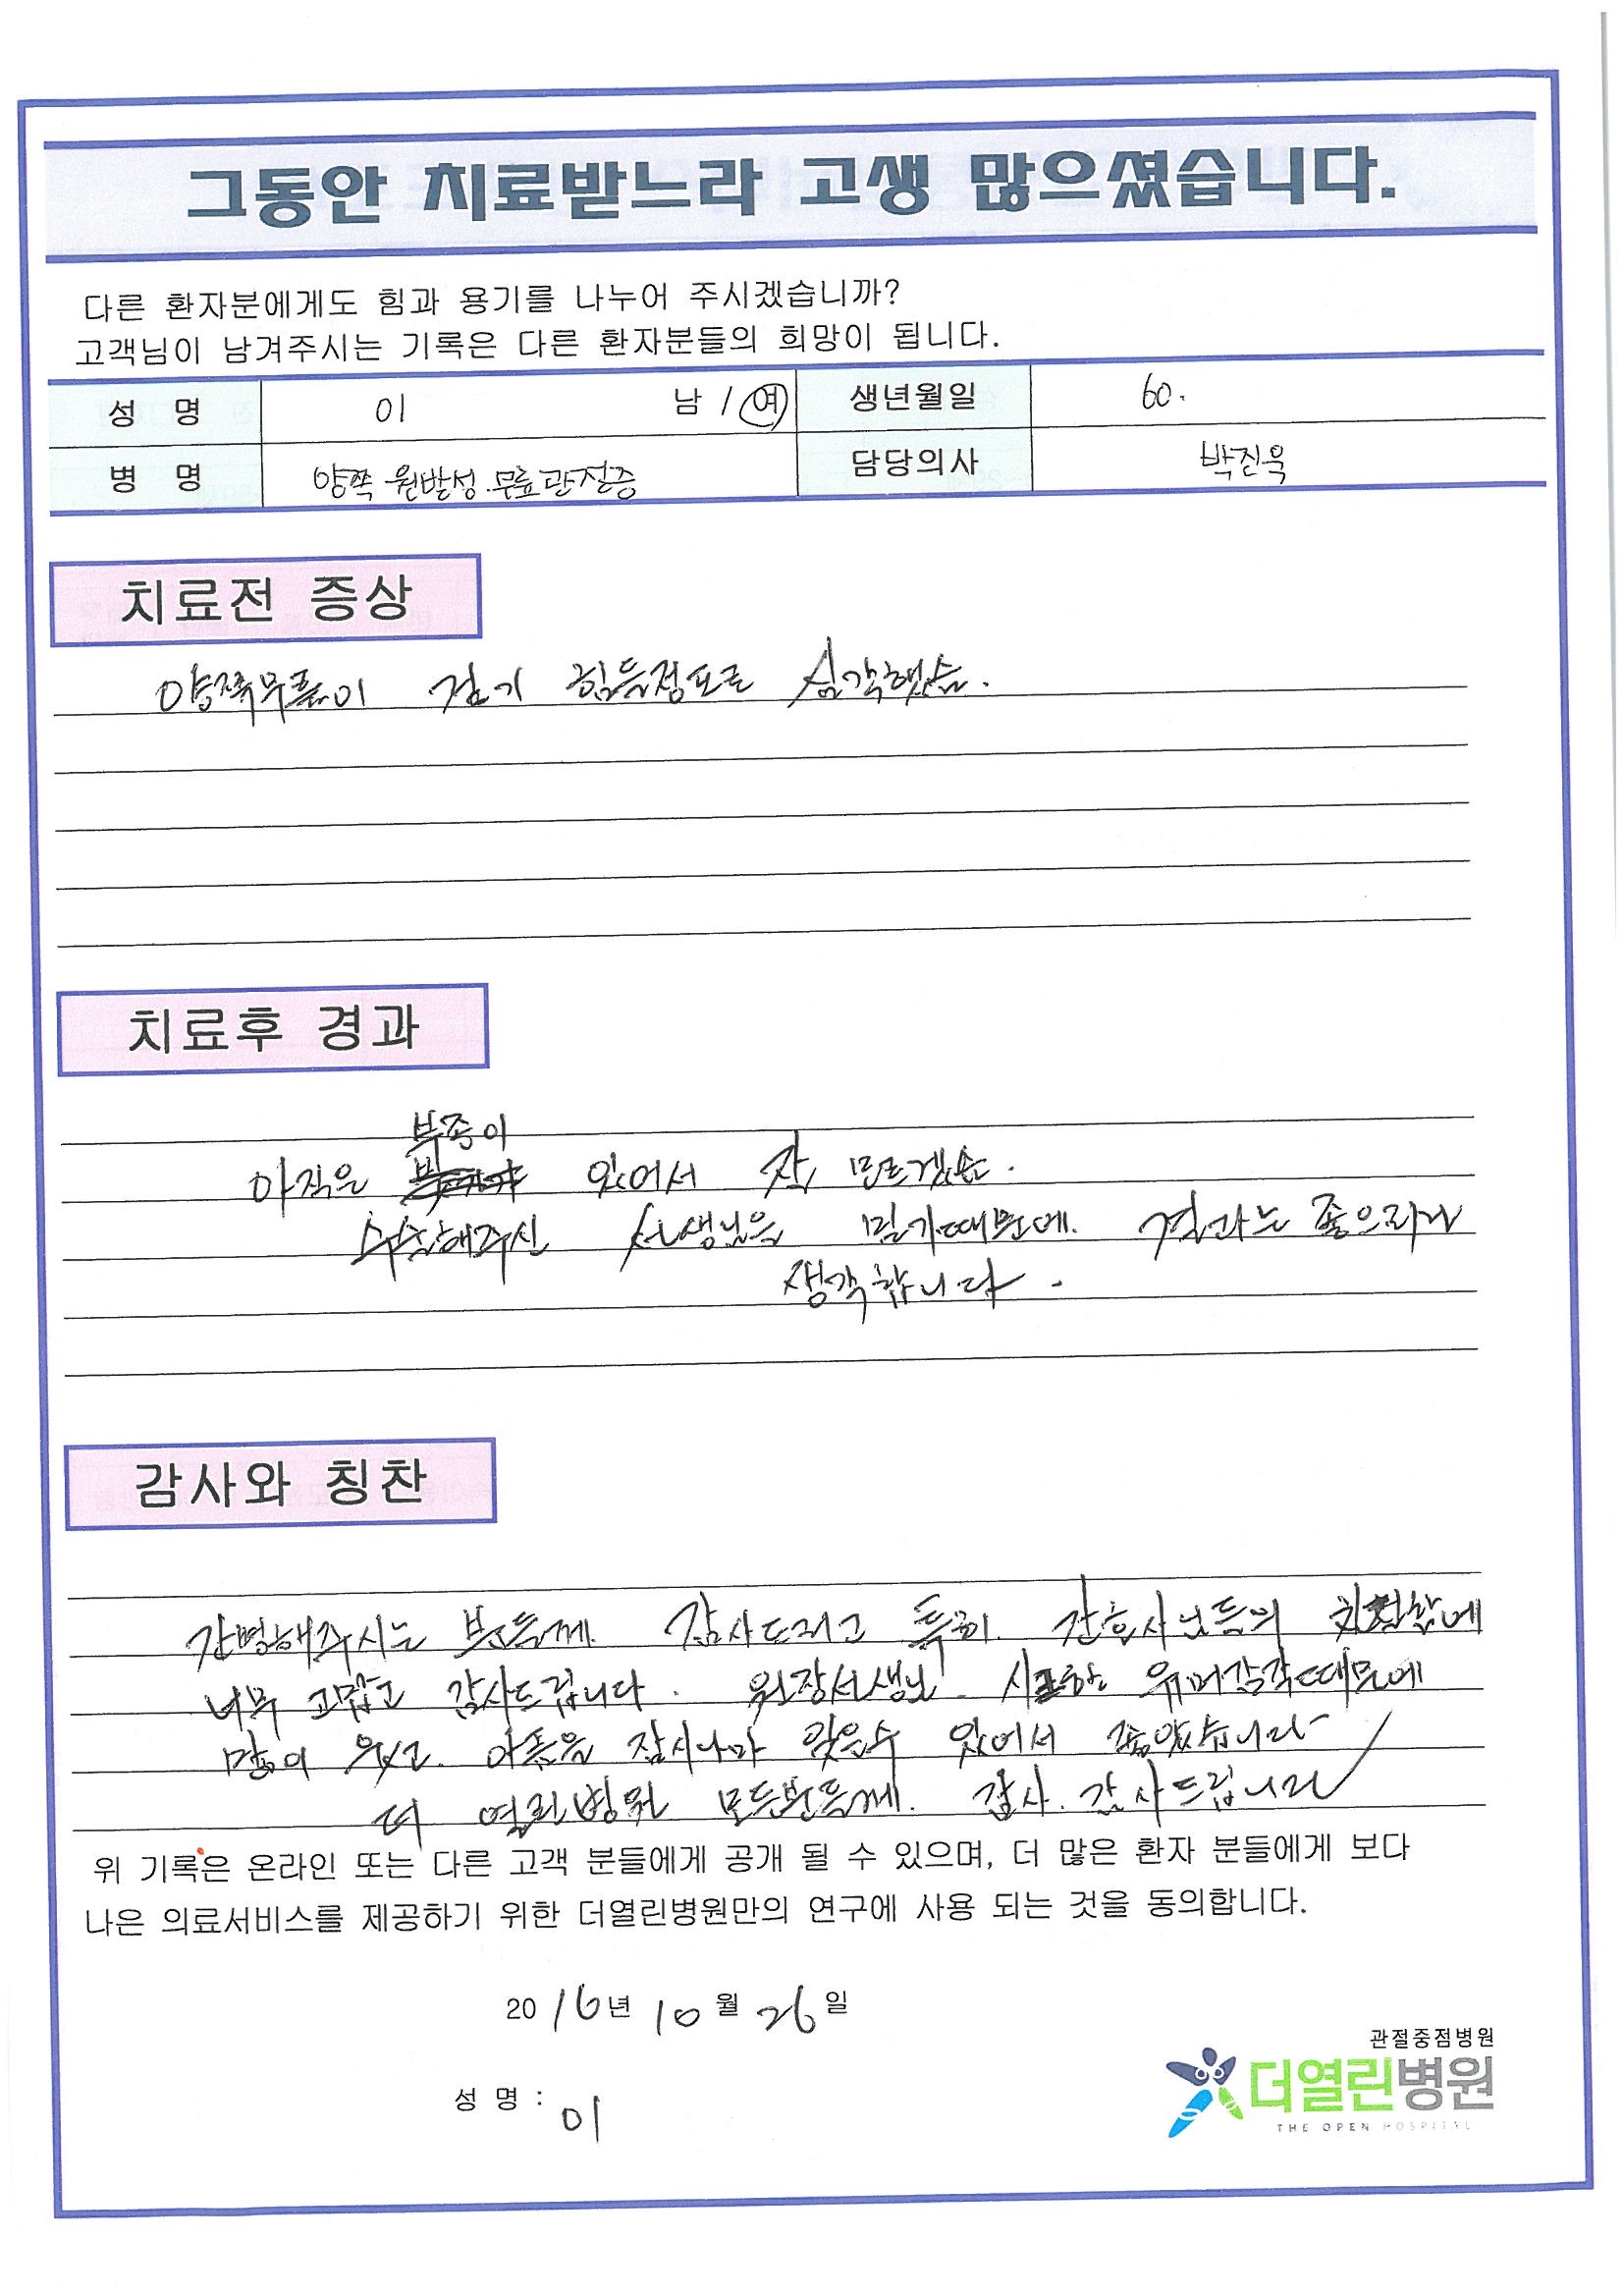 그동안 치료받느라 고생 많으셨습니다.
다른 환자분에게도 힘과 용기를 나누어 주시겠습니까?
고객님이 남겨주시는 기록은 다른 환자분들의 희망이 됩니다.
성 명 이 남 / 여 생년월일 60.
병 명 양쪽 원발성 무릎관절증 담당의사 박진욱
치료전 증상
양쪽무릎이 걷기 힘든정도로 심각했슴.
치료후 경과
부종이
아직은 있어서 잘 모르겠슴.
수술해주신 선생님을 믿기때문에. 결과는 좋으리라
생각합니다.
감사와 칭찬
간병해주시는 분들께 감사드리고 특히. 간호사님들의 친절함에
너무 고맙고 감사드립니다. 원장선생님 유머감각때문에
많이 웃고. 아픔을 잠시나마 잊을수 있어서 좋았습니다
더 열린병원 모든분들께. 감사. 감사드립니다
위 기록은 온라인 또는 다른 고객 분들에게 공개 될 수 있으며, 더 많은 환자 분들에게 보다
나은 의료서비스를 제공하기 위한 더열린병원만의 연구에 사용 되는 것을 동의합니다.
2016년 10월 26일
성 명 : 이
관절중점병원
더열린병원
THE OPEN HOSPITAL